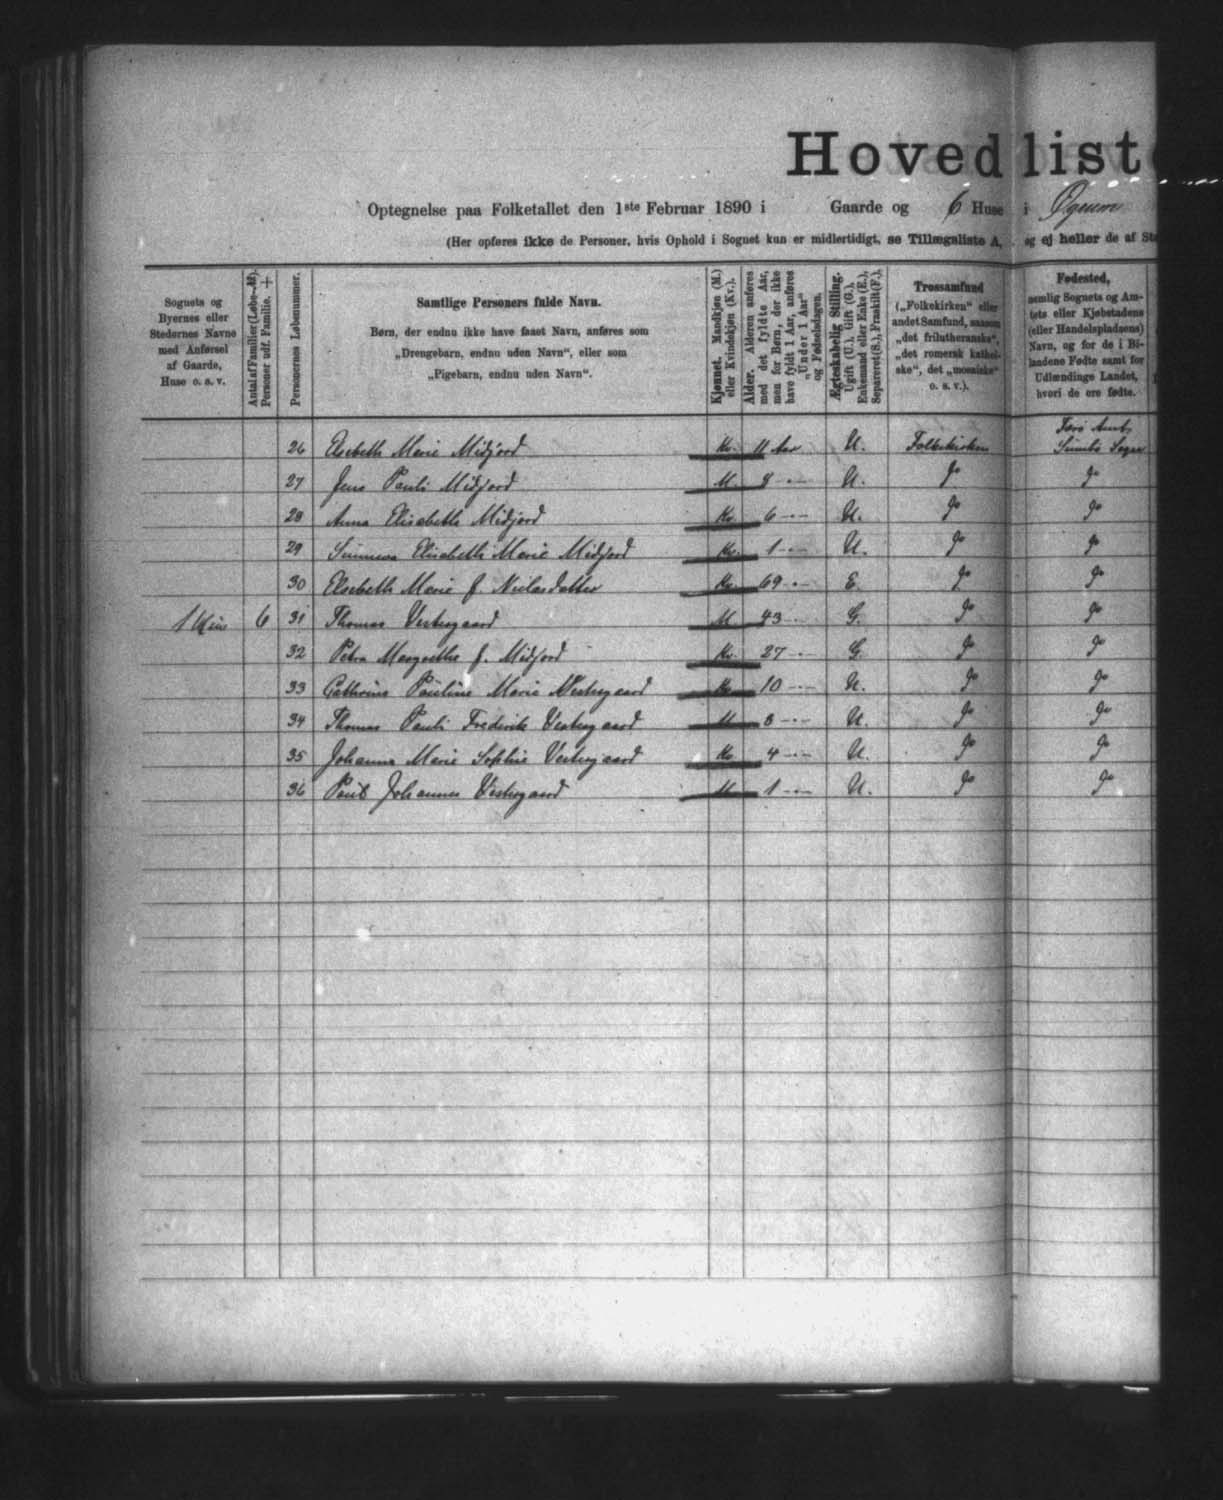 Hovedliste
Optegnelse paa Folketallet den 1ste Februar 1890 i Gaarde og 6 Huse i Øgeum
(Her opføres ikke de Personer, hvis Ophold i Sognet kun er midlertidigt, se Tillægsliste A, og ej heller de af
Sognets og Byernes eller Stedernes Navne med Anførsel af Gaarde, Huse o. s. v.
Antal af Familier (Løbe-Nr). Personer udf. Familie. +
Personernes Løbenummer.
Samtlige Personers fulde Navn.
Børn, der endnu ikke have faaet Navn, anføres som
„Drengebarn, endnu uden Navn“, eller som
„Pigebarn, endnu uden Navn“.
Kjønnet. Mandkjøn (M.) eller Kvindekjøn (Kv.).
Alder. Alderen anføres med det fyldte Aar, men for Børn, der ikke have fyldt 1 Aar, anføres „Under 1 Aar“ og Fødselsdagen.
Ægteskabelig Stilling. Ugift (U.), Gift (G.), Enkemand eller Enke (E.), Separeret (S.), Fraskilt (F.).
Trossamfund („Folkekirken“ eller andet Samfund, saasom „det frilutheranske“, „det romersk katholske“, det „mosaiske“ o. s. v.).
Fødested, nemlig Sognets og Amtets eller Kjøbstadens (eller Handelspladsens) Navn, og for de i Bilandene Fødte samt for Udlændinge Landet, hvori de ere fødte.
26 Elsebeth Marie Midjord Kv. 11 Aar U. Folkekirken Færø Amt, Sumbø Sogn
27 Jens Pauli Midjord M. 8 -"- U. Do Do
28 Anna Elisabeth Midjord Kv. 6 -"- U. Do Do
29 Sunneva Elisabeth Marie Midjord Kv. 1 -"- U. Do Do
30 Elsebeth Marie f. Niclasdatter Kv. 69 -"- E. Do Do
1 Huus 6 31 Thomas Vestergaard M. 43 -"- G. Do Do
32 Petra Margrethe f. Midjord Kv. 27 -"- G. Do Do
33 Cathrine Pauline Marie Vestergaard Kv. 10 -"- U. Do Do
34 Thomas Pauli Frederik Vestergaard M. 8 -"- U. Do Do
35 Johanne Marie Sophie Vestergaard Kv. 4 -"- U. Do Do
36 Poul Johannes Vestergaard M. 1 -"- U. Do Do